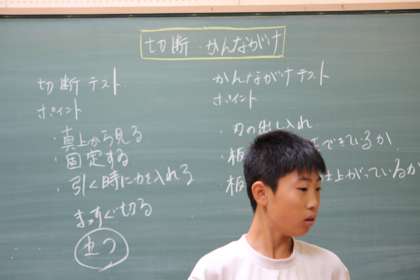 切断・かんながけ
切断テスト
ポイント
・真上から見る
・固定する
・引く時に力を入れる
まっすぐ切る
かんながけテスト
ポイント
・刃の出し入れ
・板 できているか
板 仕上がっているか